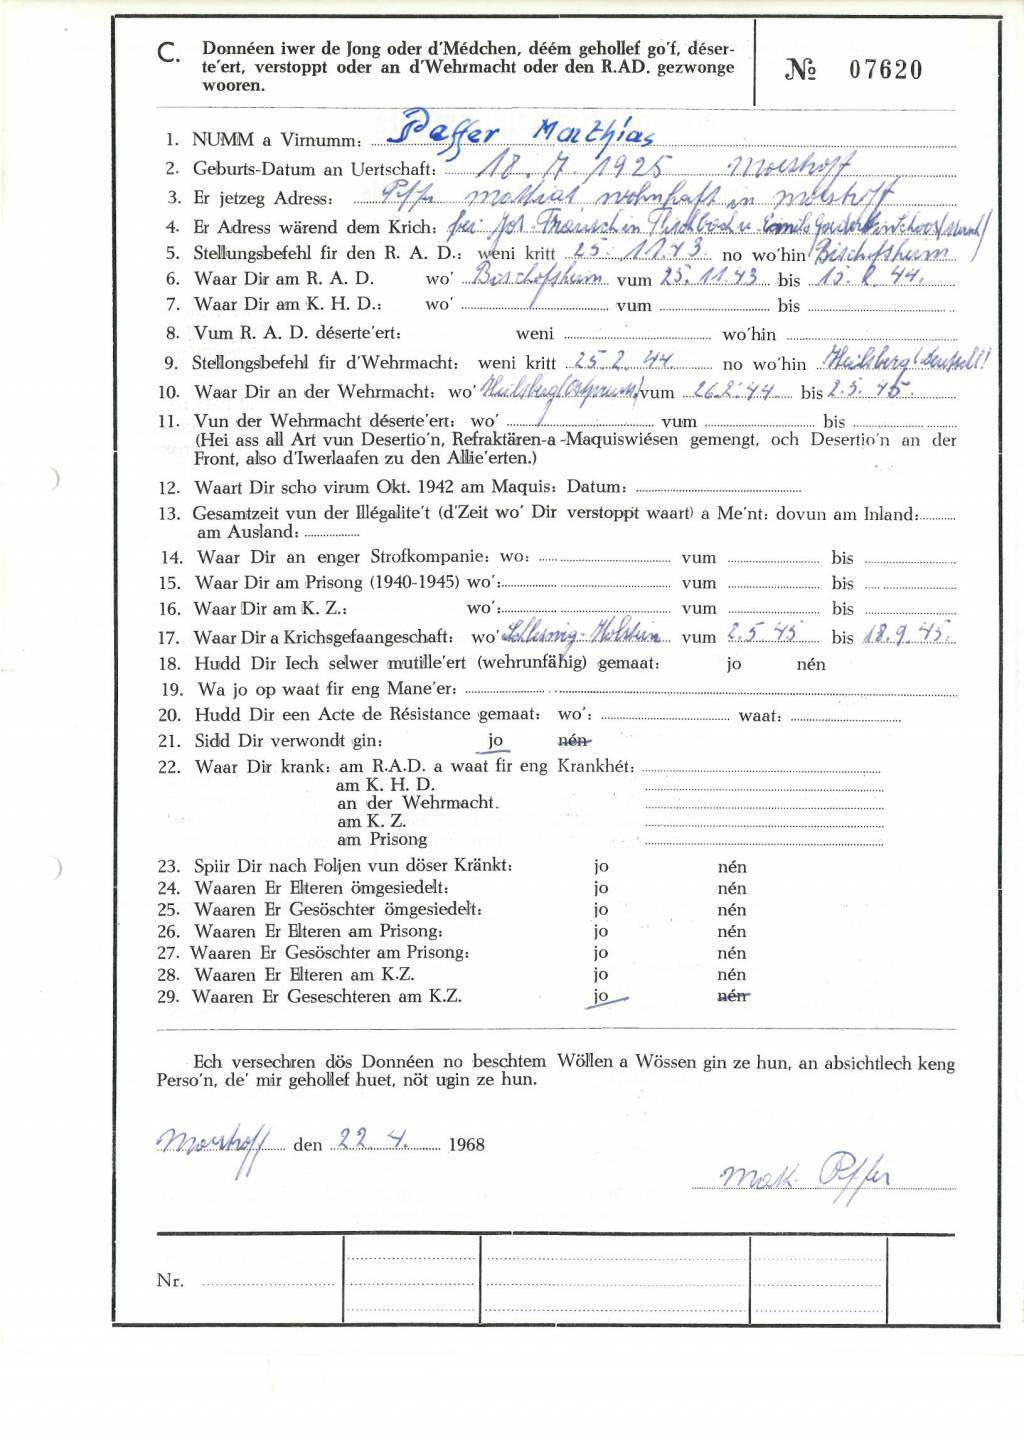 C. Donnéen iwer de Jong oder d'Médchen, déém gehollef go'f, déser-
te'ert, verstoppt oder an d'Wehrmacht oder den R.AD. gezwonge
wooren.
№ 07620
1. NUMM a Virnumm: Peffer Mathias
2. Geburts-Datum an Uertschaft: 18. 7. 1925 Moeshoff
3. Er jetzeg Adress: Peffer Mathias wohnhaft in Moeshoff
4. Er Adress wärend dem Krich: bei Jos. Fischbach
5. Stellungsbefehl fir den R. A. D.: weni kritt 25. 11. 43. no wo'hin Bischofsheim
6. Waar Dir am R. A. D. wo' Bischofsheim vum 25. 11. 43 bis 15. 2. 44.
7. Waar Dir am K. H. D.: wo' vum bis
8. Vum R. A. D. déserte'ert: weni wo'hin
9. Stellongsbefehl fir d'Wehrmacht: weni kritt 25. 2. 44. no wo'hin Heilsberg
10. Waar Dir an der Wehrmacht: wo' Heilsberg vum 26. 2. 44 bis 2. 5. 45.
11. Vun der Wehrmacht déserte'ert: wo' vum bis
(Hei ass all Art vun Desertio'n, Refraktären-a -Maquiswiésen gemengt, och Desertio'n an der
Front, also d'Iwerlaafen zu den Allie'erten.)
12. Waart Dir scho virum Okt. 1942 am Maquis: Datum:
13. Gesamtzeit vun der Illégalite't (d'Zeit wo' Dir verstoppt waart) a Me'nt: dovun am Inland:
am Ausland:
14. Waar Dir an enger Strofkompanie: wo: vum bis
15. Waar Dir am Prisong (1940-1945) wo': vum bis
16. Waar Dir am K. Z.: wo': vum bis
17. Waar Dir a Krichsgefaangeschaft: wo' Schleswig-Holstein vum 2. 5 45 bis 18. 9. 45.
18. Hudd Dir Iech selwer mutille'ert (wehrunfähig) gemaat: jo nén
19. Wa jo op waat fir eng Mane'er:
20. Hudd Dir een Acte de Résistance gemaat: wo': waat:
21. Sidd Dir verwondt gin: jo nén
22. Waar Dir krank: am R.A.D. a waat fir eng Krankhét:
am K. H. D.
an der Wehrmacht.
am K. Z.
am Prisong
23. Spiir Dir nach Foljen vun döser Kränkt: jo nén
24. Waaren Er Elteren ömgesiedelt: jo nén
25. Waaren Er Gesöschter ömgesiedelt: jo nén
26. Waaren Er Elteren am Prisong: jo nén
27. Waaren Er Gesöschter am Prisong: jo nén
28. Waaren Er Elteren am K.Z. jo nén
29. Waaren Er Geseschteren am K.Z. jo nén
Ech versechren dös Donnéen no beschtem Wöllen a Wössen gin ze hun, an absichtlech keng
Perso'n, de' mir gehollef huet, nöt ugin ze hun.
Moeshoff den 22 4. 1968
Math. Peffer
Nr.